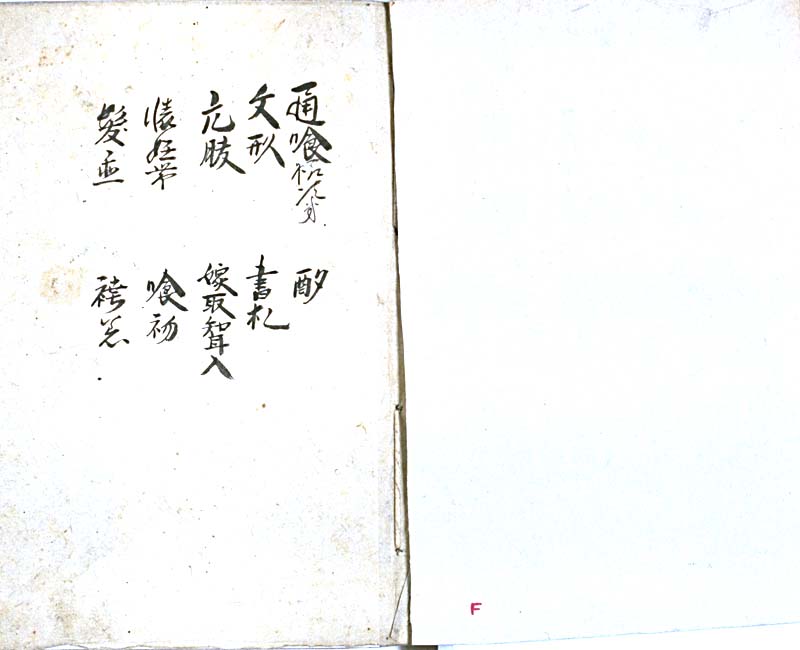 通喰 酌
文形 書札
元服 嫁取聟入
懐妊帯 喰初
髪置 袴着
F